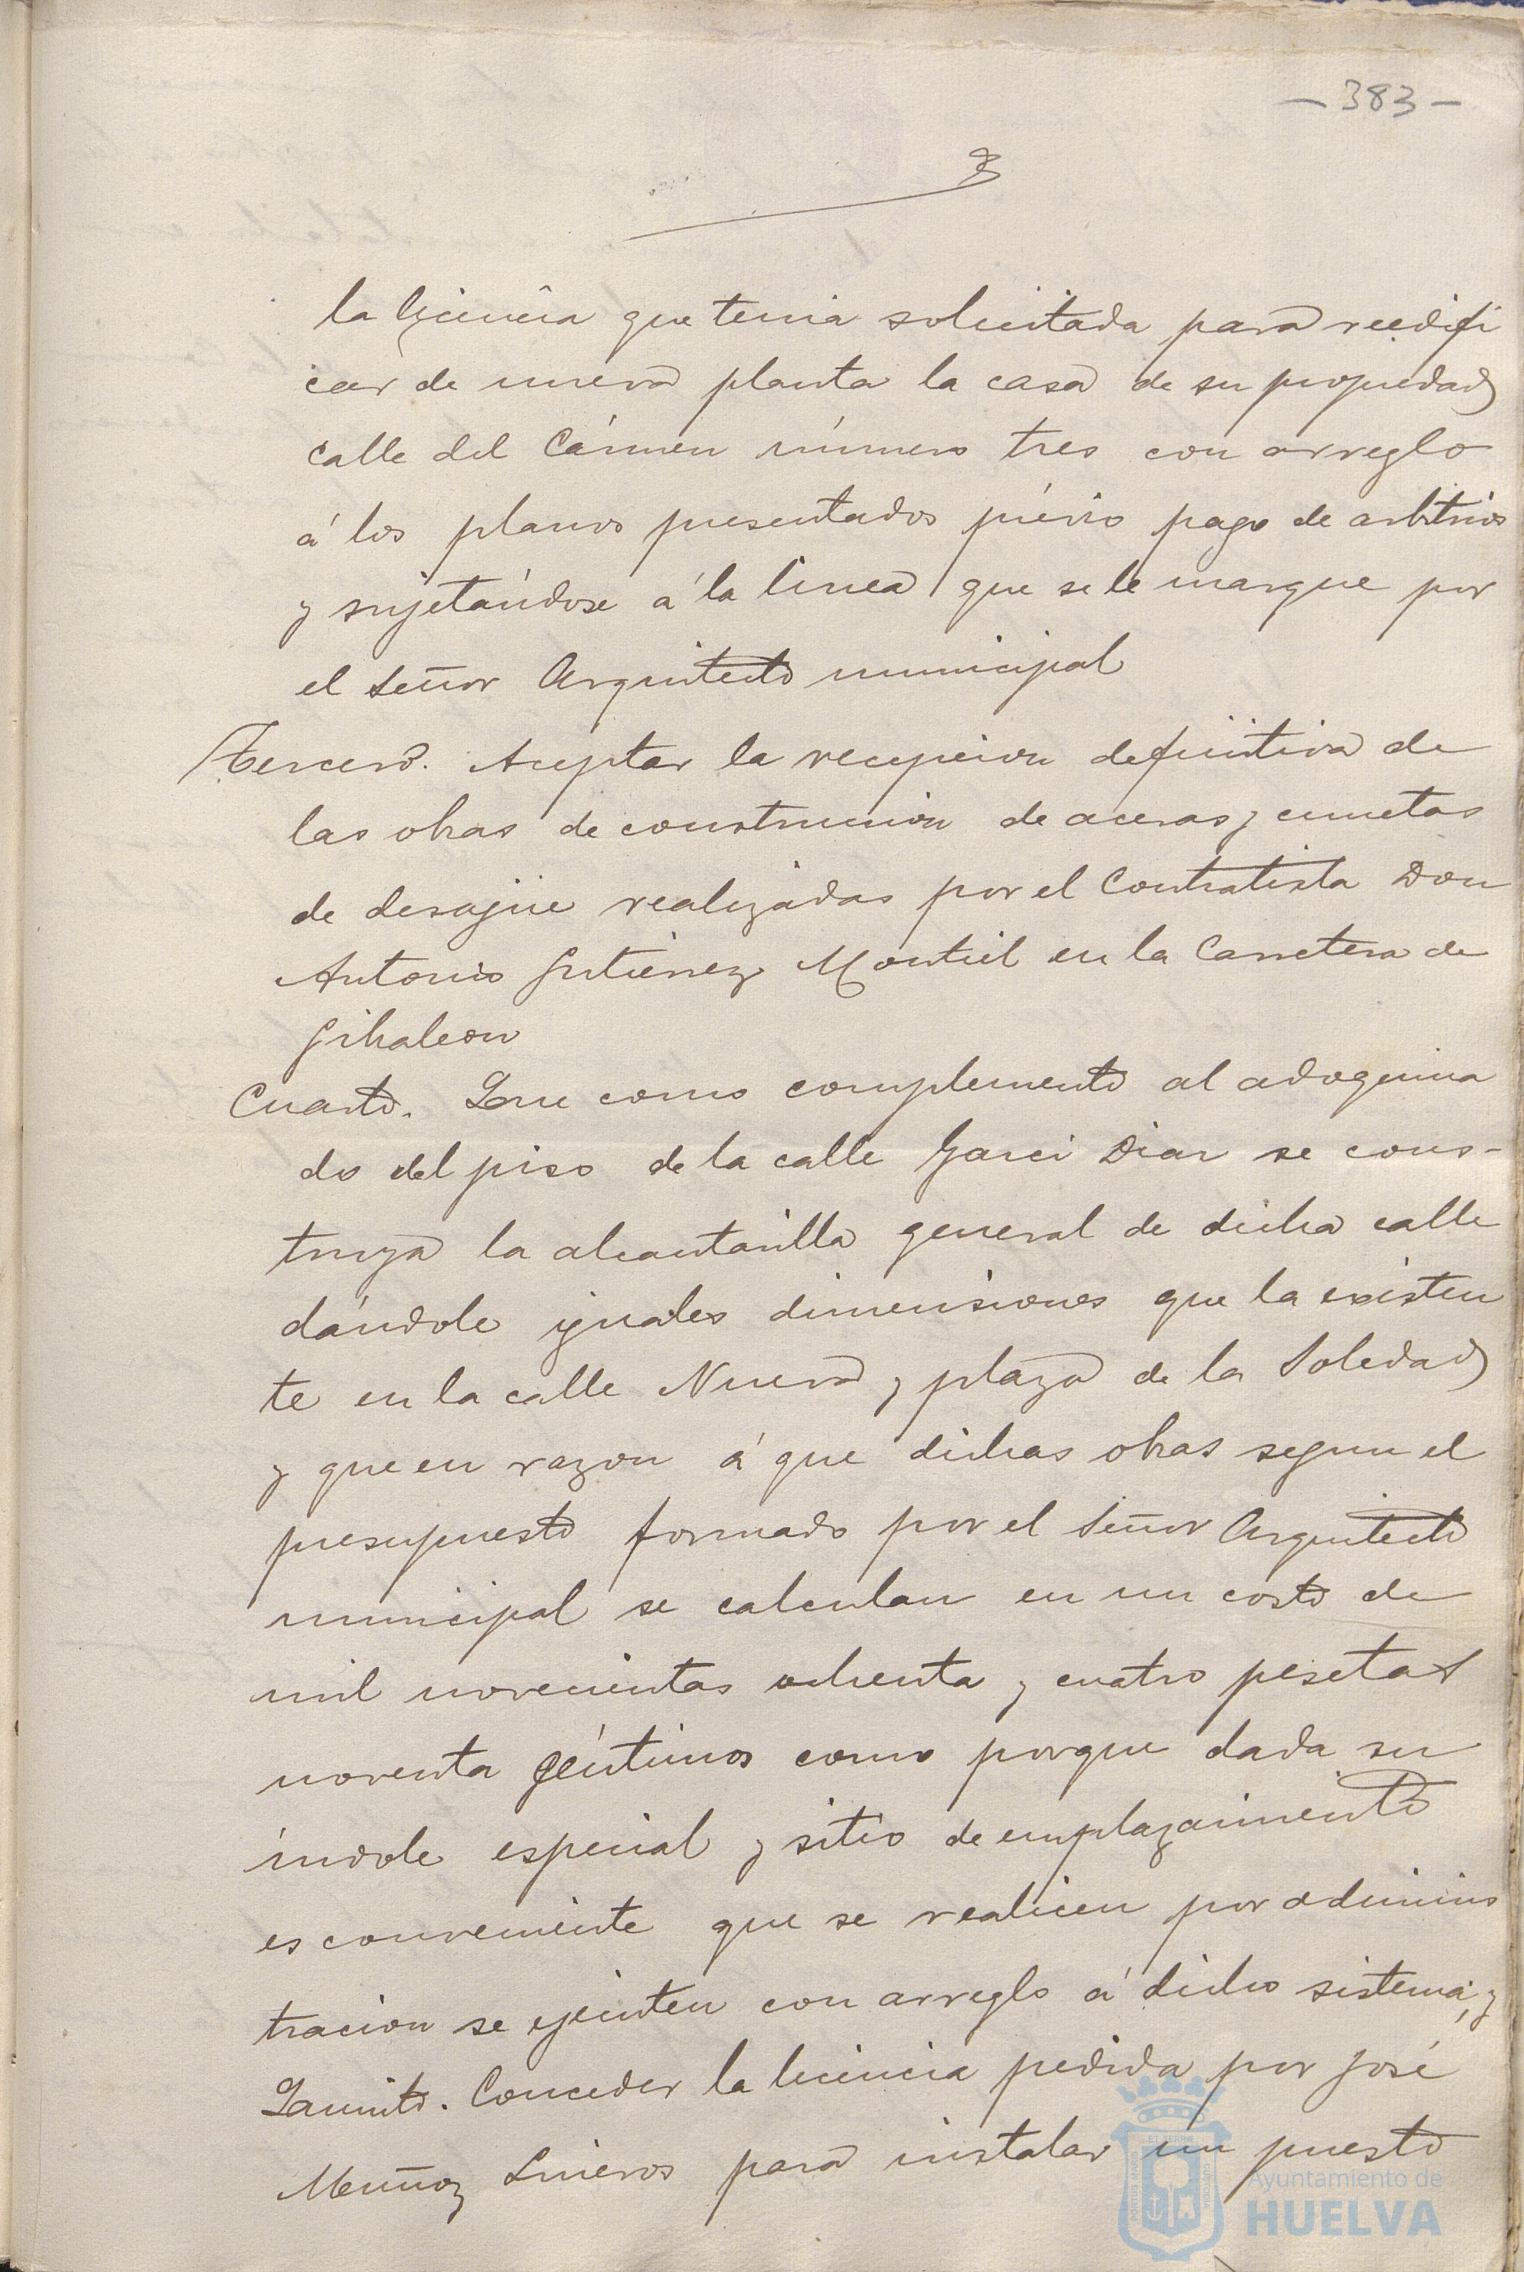 - 383 -
la licencia que tenia solicitada para reedifi
car de nueva planta la casa de su propiedad
calle del Cármen número tres con arreglo
á los planos presentados prévio pago de arbitrios
y sujetándose á la linea que se le marque por
el Señor Arquitecto municipal
Tercero. Aceptar la recepcion definitiva de
las obras de construccion de aceras y cunetas
de desagüe realizadas por el Contratista Don
Antonio Gutierrez Montiel en la Carretera de
Gibraleon
Cuarto. Que como complemento al adoquina
do del piso de la calle Garci Diaz se cons-
truya la alcantarilla general de dicha calle
dándole iguales dimensiones que la existen
te en la calle Nueva y plaza de la Soledad
y que en razon á que dichas obras segun el
presupuesto formado por el Señor Arquitecto
municipal se calculan en un costo de
mil novecientas ochenta y cuatro pesetas
noventa céntimos como porque dada su
índole especial y sitio de emplazamiento
es conveniente que se realicen por adminis
tracion se ejecuten con arreglo á dicho sistema, y
Quinto. Conceder la licencia pedida por José
Muñoz para instalar un puesto
Ayuntamiento de
HUELVA